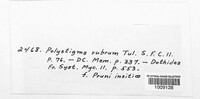 2468. Polystigma rubrum Tul. S.F.C. II.
p. 76. — DC. Mem. p. 337. — Dothidea
Fr. Syst. Myc. II. p. 553.
f. Pruni insitiae
1009128